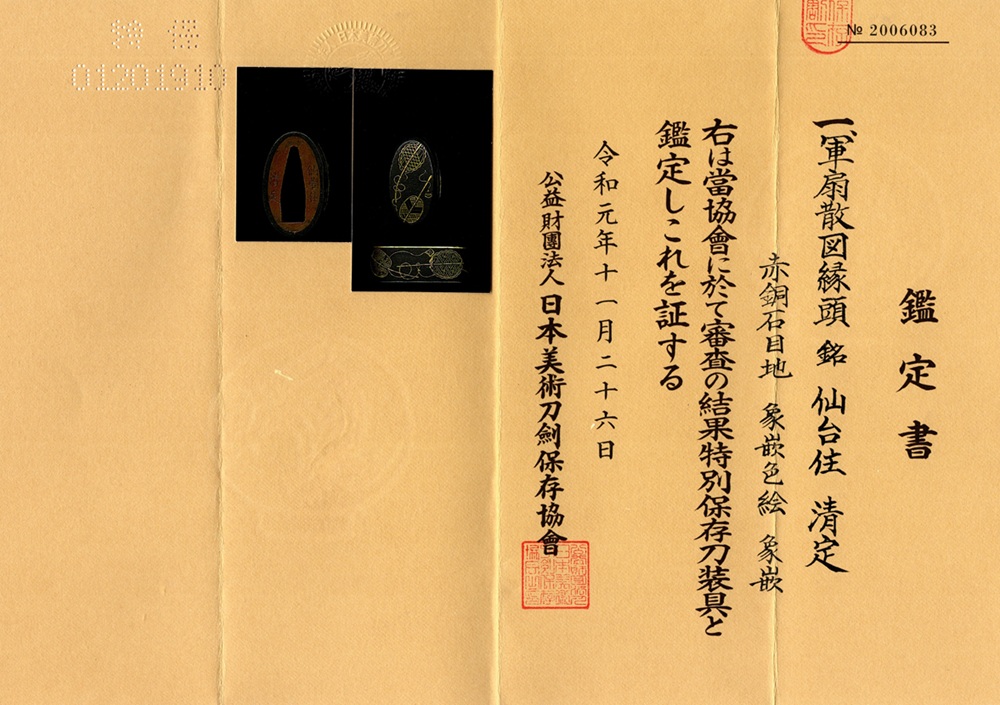 № 2006083
鑑定書
一、軍扇散図縁頭 銘 仙台住 清定
赤銅石目地 象嵌色絵 象嵌
右は當協會に於て審査の結果特別保存刀装具と
鑑定しこれを証する
令和元年十一月二十六日
公益財團法人 日本美術刀劍保存協會
01201910